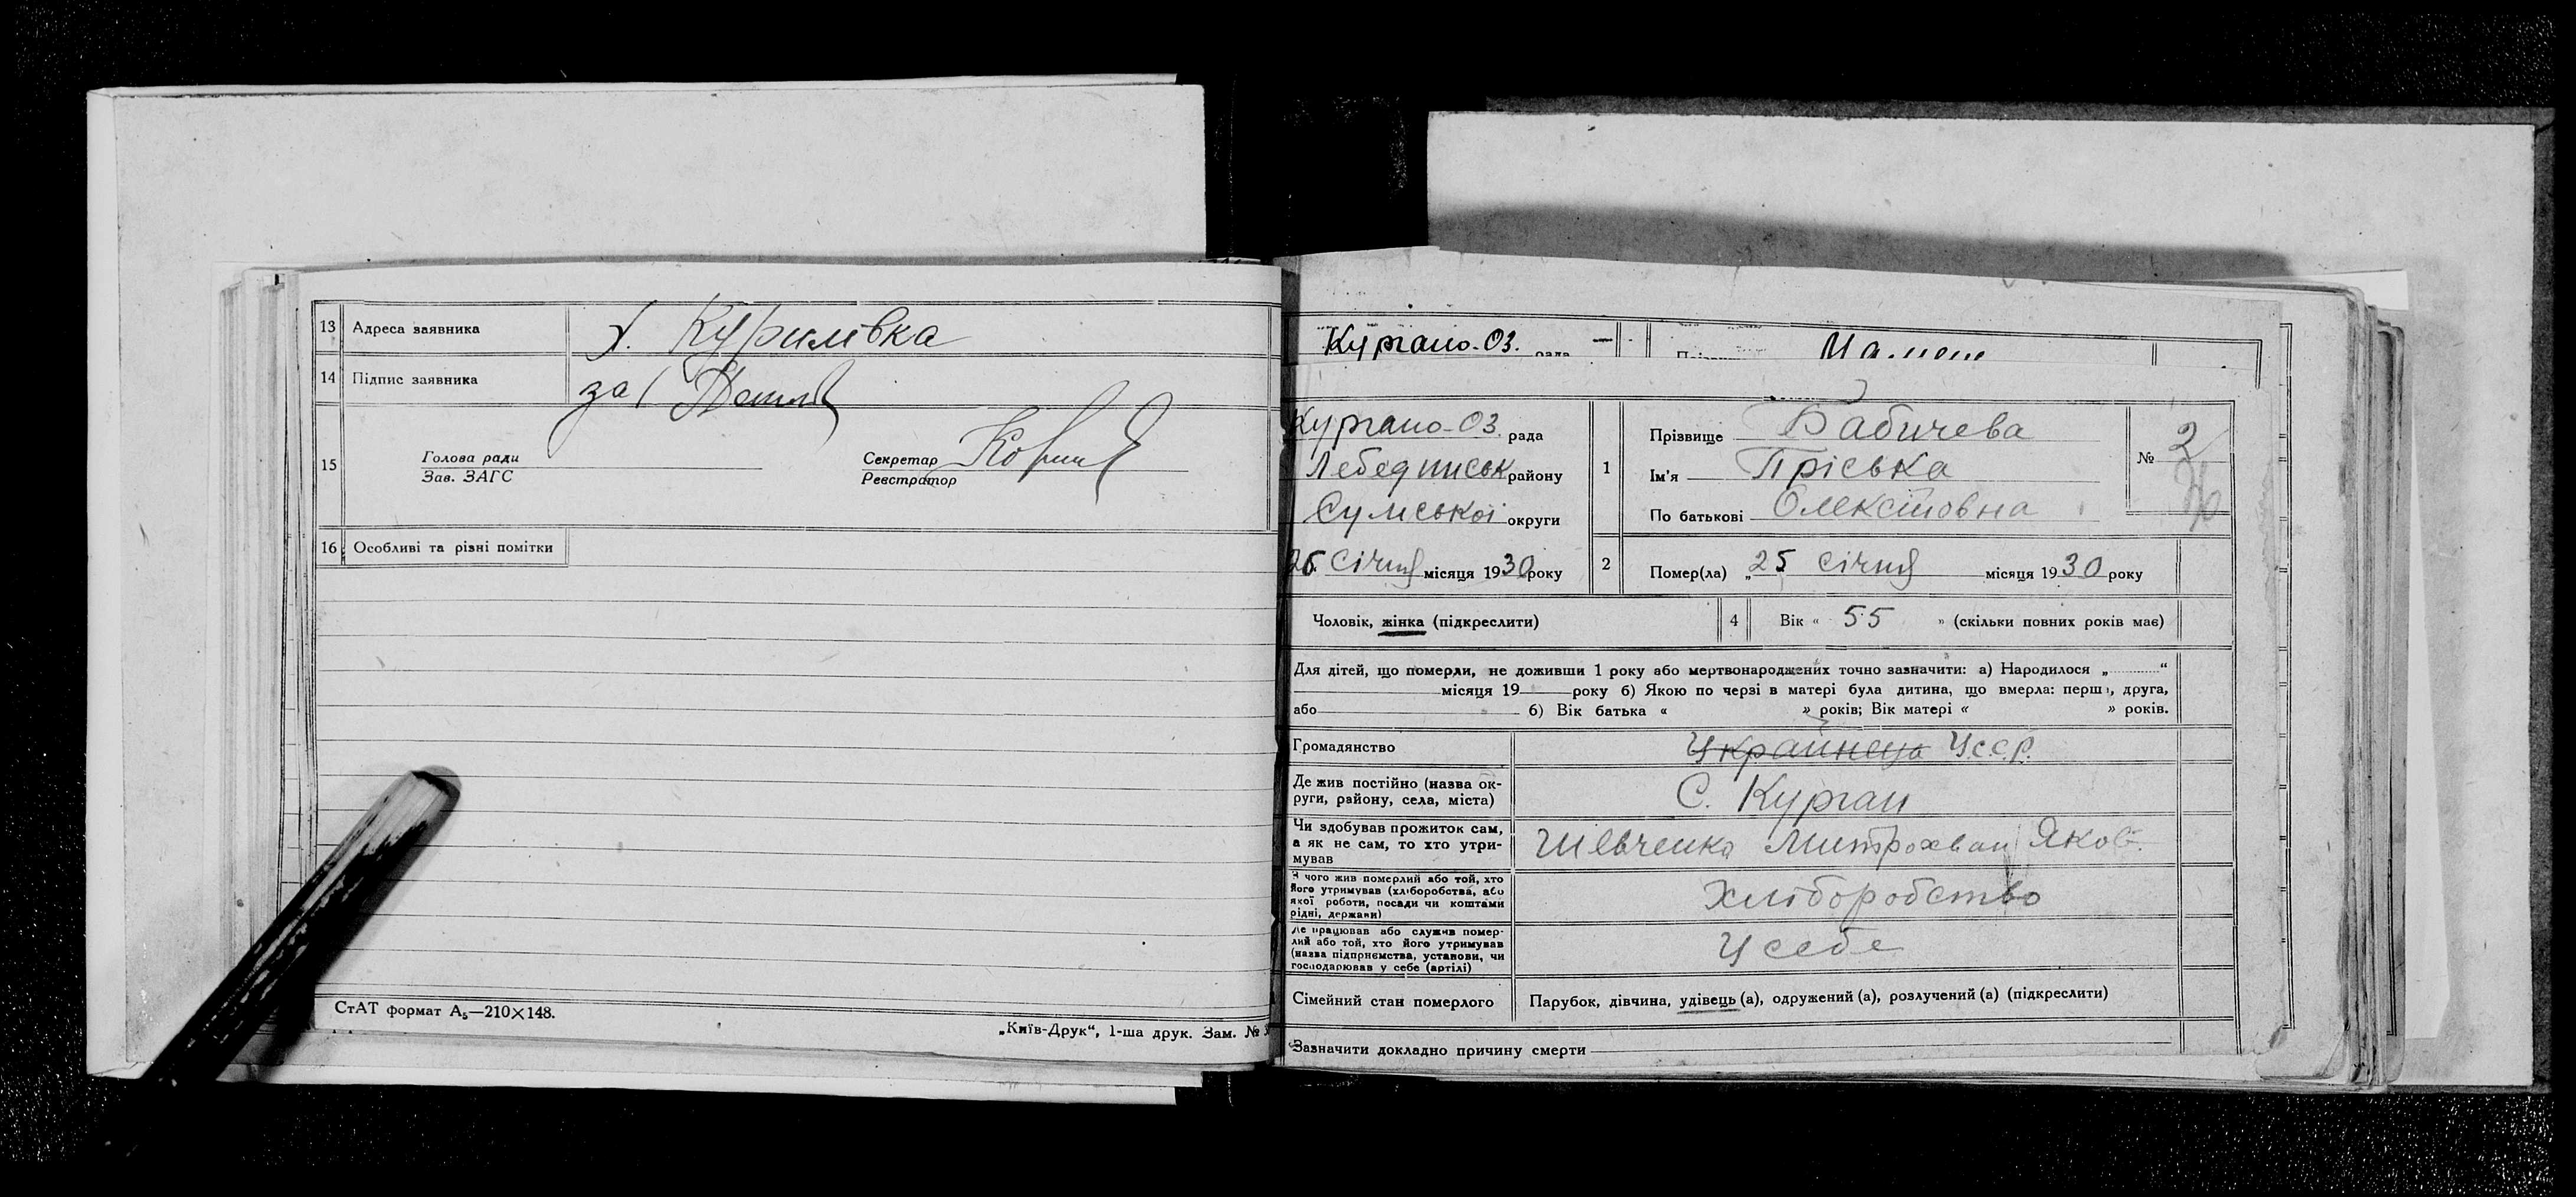 13 Адреса заявника х. Курилівка
14 Підпис заявника за
15 Голова ради
Зав. ЗАГС
Секретар
Реєстратор
16 Особливі та різні помітки
СтАТ формат А₅—210×148.
„Київ-Друк“, 1-ша друк. Зам. №
Кургано-Оз. рада
Кургано-Оз. рада
Лебединськ району
Сумської округи
1 Прізвище Бабичева
Ім'я Пріська
По батькові
№ 2
26 Січня місяця 1930 року
2 Помер(ла) „25 Січня місяця 1930 року
Чоловік, жінка (підкреслити)
4 Вік « 55 » (скільки повних років має)
Для дітей, що померли, не доживши 1 року або мертвонароджених точно зазначити: а) Народилося „ “
місяця 19 року б) Якою по черзі в матері була дитина, що вмерла: перша, друга,
або б) Вік батька « » років; Вік матері « » років.
Громадянство Українець УССР.
Де жив постійно (назва ок-
руги, району, села, міста) С. Курган
Чи здобував прожиток сам,
а як не сам, то хто утри-
мував Шевченко Митрохван Яков.
З чого жив померлий або той, хто
його утримував (хліборобства, або
якої роботи, посади чи коштами
рідні, держави) Хліборобство
Де працював або служив помер-
лий або той, хто його утримував
(назва підприємства, установи, чи
господарював у себе (артілі) У себе
Сімейний стан померлого Парубок, дівчина, удівець (а), одружений (а), розлучений (а) (підкреслити)
Зазначити докладно причину смерти